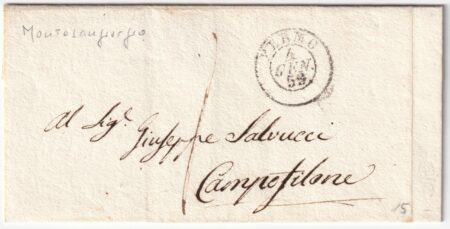 Montesangiorgio
FERMO
4
GEN.
52
Al Sigr. Giuseppe Salvucci
Campofilone
15